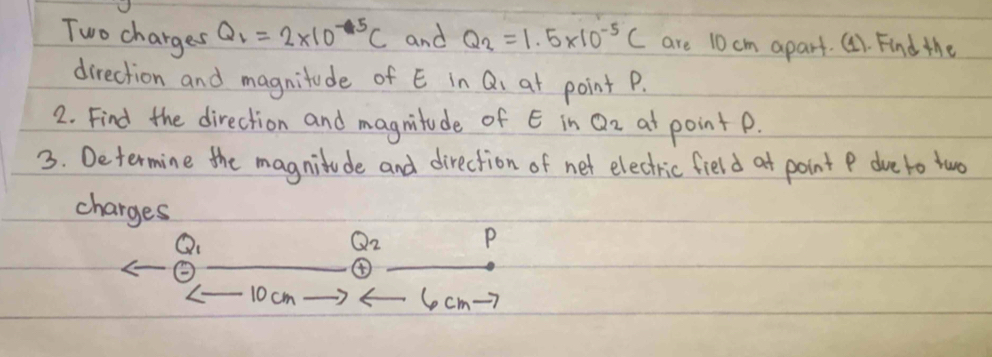 Two charges Q₁ = 2x10⁻⁵C and Q₂ = 1.5x10⁻⁵C are 10cm apart. (1). Find the
direction and magnitude of E in Q₁ at point P.
2. Find the direction and magnitude of E in Q₂ at point P.
3. Determine the magnitude and direction of net electric field at point P due to two
charges
Q₁ Q₂ P
← ⊖ ⊕
← 10cm → ← 6cm →